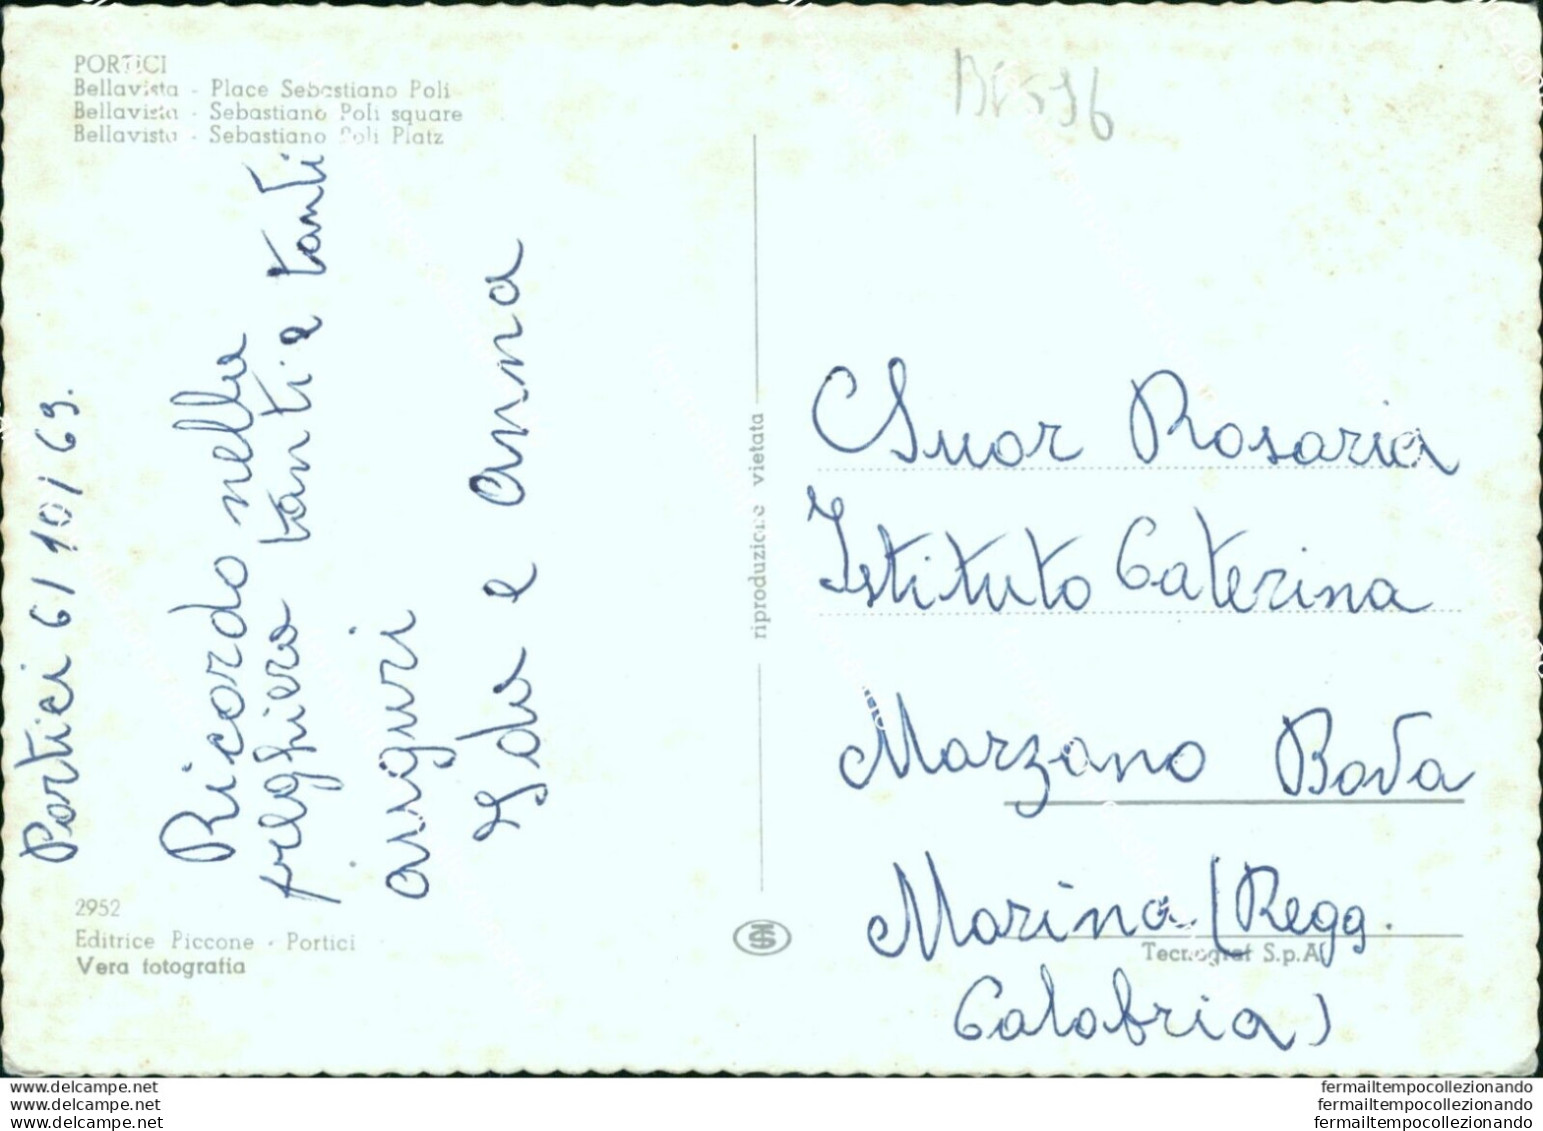 PORTICI
Bellavista - Place Sebastiano Poli
Bellavista - Sebastiano Poli square
Bellavista - Sebastiano Poli Platz
Portici 6/10/69.
Ricordo nella
preghiera tanti e tanti
auguri
Ida e Anna
2952
Editrice Piccone - Portici
Vera fotografia
riproduzione vietata
Suor Rosaria
Istituto Caterina
Marzano Bova
Marina (Regg.
Calabria)
Tecnograf S.p.A.
www.delcampe.net
www.delcampe.net
www.delcampe.net
fermailtempocollezionando
fermailtempocollezionando
fermailtempocollezionando